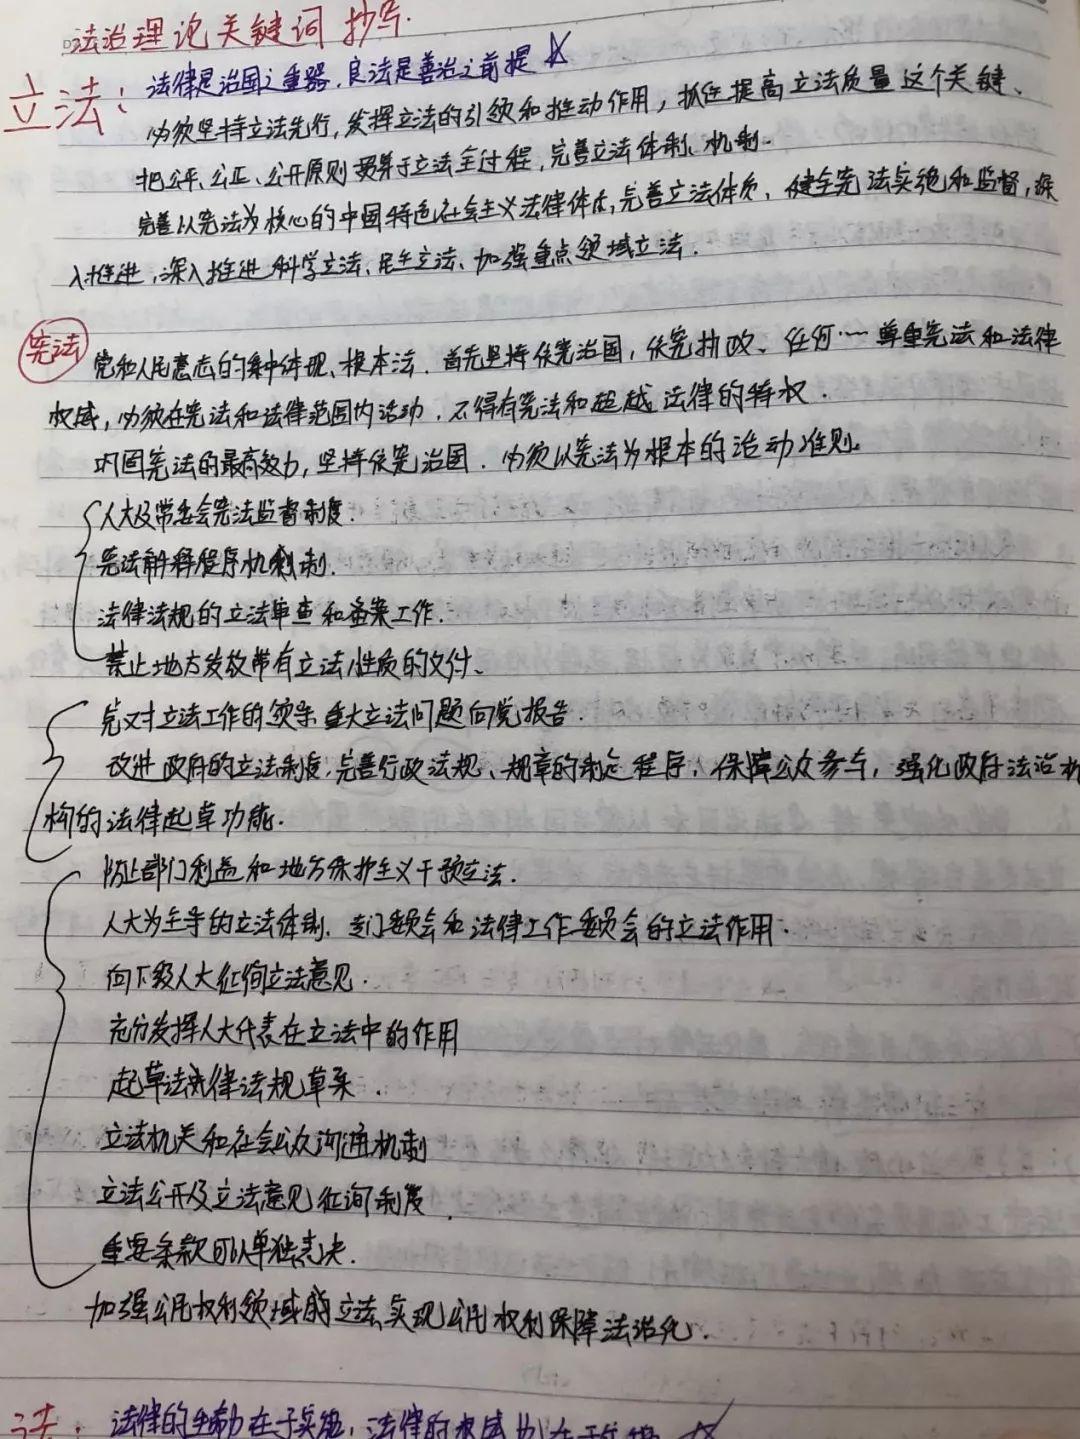 法治理论关键词 抄写.
立法: 法律是治国之重器.良法是善治之前提
必须坚持立法先行,发挥立法的引领和推动作用,抓住提高立法质量这个关键、
把公平、公正、公开原则贯穿于立法全过程,完善立法体制、机制.
完善以宪法为核心的中国特色社会主义法律体系,完善立法体质、健全宪法实施和监督,深
入推进,深入推进科学立法、民主立法、加强重点领域立法.
宪法 党和人民意志的集中体现、根本法.首先坚持依宪治国,依宪执政、任何……尊重宪法和法律
权威,必须在宪法和法律范围内活动.不得有宪法和超越法律的特权.
巩固宪法的最高效力,坚持依宪治国.必须以宪法为根本的活动准则.
人大及常委会宪法监督制度.
宪法解释程序机制.
法律法规的立法审查和备案工作.
禁止地方发放带有立法性质的文件、
党对立法工作的领导 重大立法问题向党报告.
改进政府的立法制度,完善行政法规、规章的制定程序,保障公众参与,强化政府法治机
构的法律起草功能.
防止部门利益和地方保护主义干预立法.
人大为主导的立法体制,专门委员会和法律工作委员会的立法作用.
向下级人大征询立法意见.
充分发挥人大代表在立法中的作用
起草法律法规草案.
立法机关和社会公众沟通机制
立法公开及立法意见征询制度.
重要条款可以单独表决.
加强公民权利领域的立法实现公民权利保障法治化.
法: 法律的生命力在于实施,法律的权威也在于实施